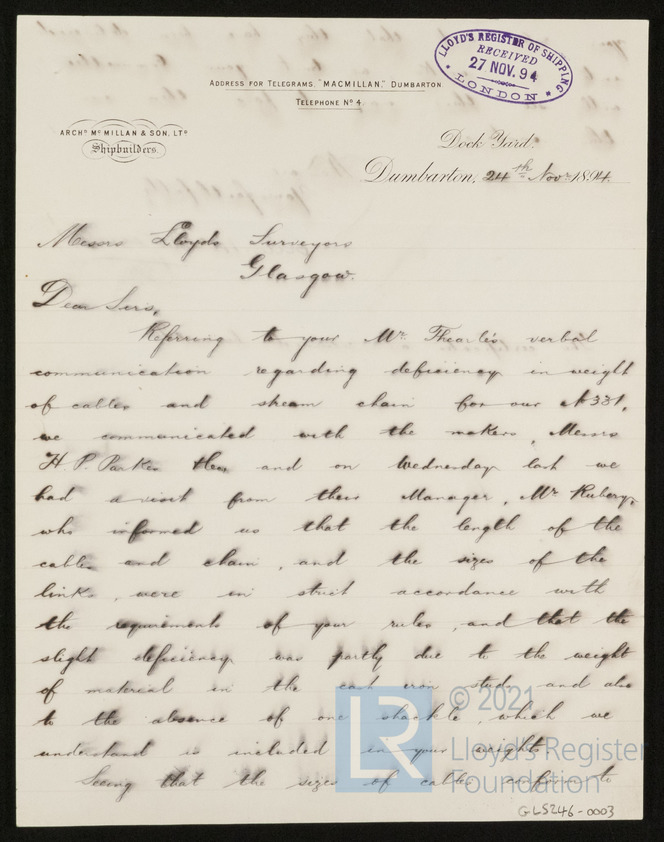 LLOYD'S REGISTER OF SHIPPING
RECEIVED
27 NOV. 94
LONDON
ADDRESS FOR TELEGRAMS, "MACMILLAN," DUMBARTON.
TELEPHONE Nº 4.
ARCHD. MCMILLAN & SON, LTD
Shipbuilders.
Dock Yard.
Dumbarton, 24th Novr 1894.
Messrs Lloyds Surveyors
Glasgow.
Dear Sirs,
Referring to your Mr. Thearle's verbal
communication regarding deficiency in weight
of cables and steam chain for our No 331,
we communicated with the makers, Messrs
H. P. Parkes and on Wednesday last we
had a visit from their Manager, Mr Rubery,
who informed us that the length of the
cables and chain, and the sizes of the
links, were in strict accordance with
the requirements of your rules, and that the
slight deficiency was partly due to the weight
of material in the cast iron studs and also
to the absence of one shackle, which we
understand is included in your weights.
Seeing that the sizes of cables conform to
LR
© 2021
Lloyd's Register
Foundation
GLS246-0003